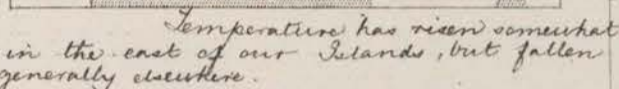 Temperature has risen somewhat
in the east of our Islands, but fallen
generally elsewhere.